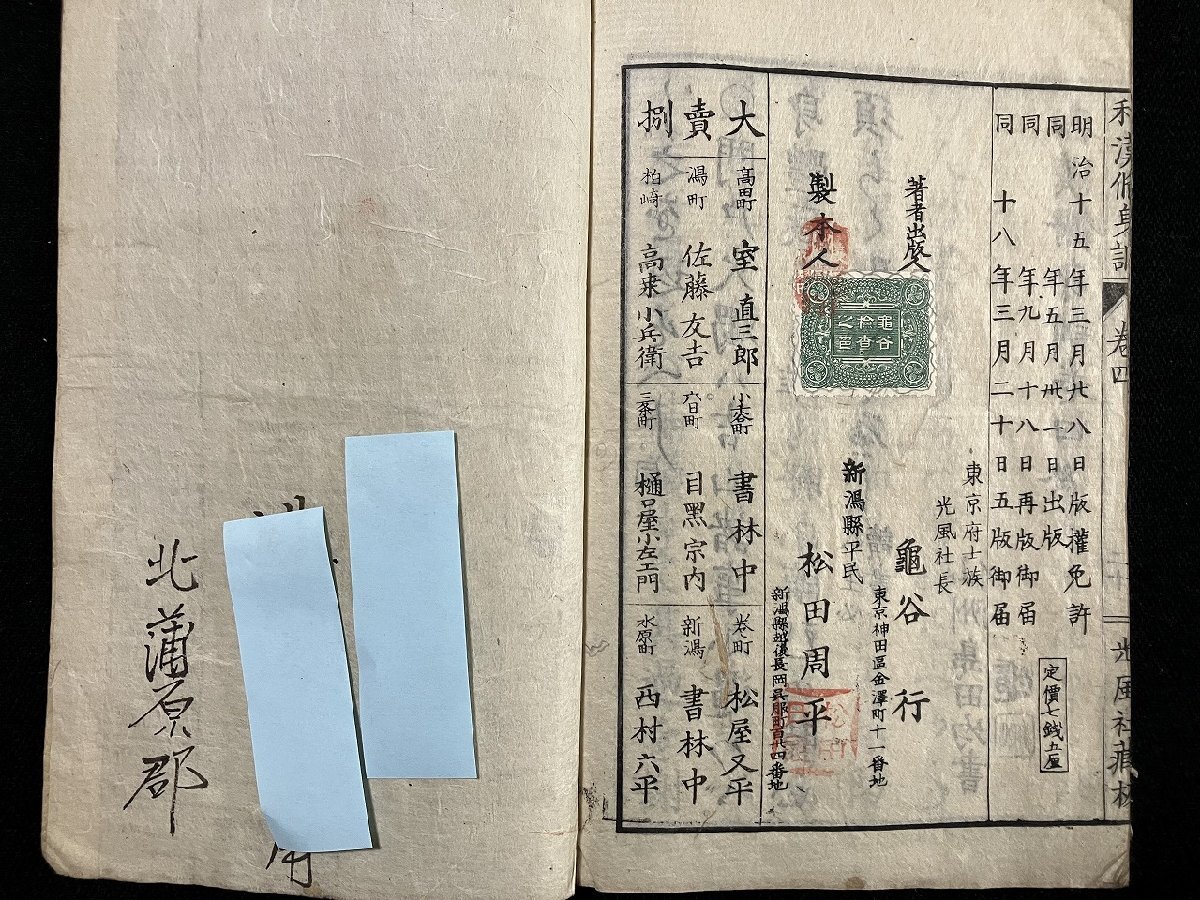 和漢修身訓
卷四
光風社藏板
明治十五年三月廿八日版權免許
同年五月卅一日出版
同年九月十八日再版御届
同十八年三月二十日五版御届
定價七銭五厘
東京府士族
光風社長
著者出版人
龜谷行
東京神田區金澤町十一番地
新潟縣平民
製本人
松田周平
新潟縣越後長岡呉服町百廿四番地
龜谷
大賣捌
高田町 室直三郎
潟町 佐藤友吉
柏崎 高桒小兵衛
書林中
六日町 目黑宗内
三条町 樋口屋小左エ門
卷町 松屋又平
新潟 書林中
水原町 西村六平
北蒲原郡